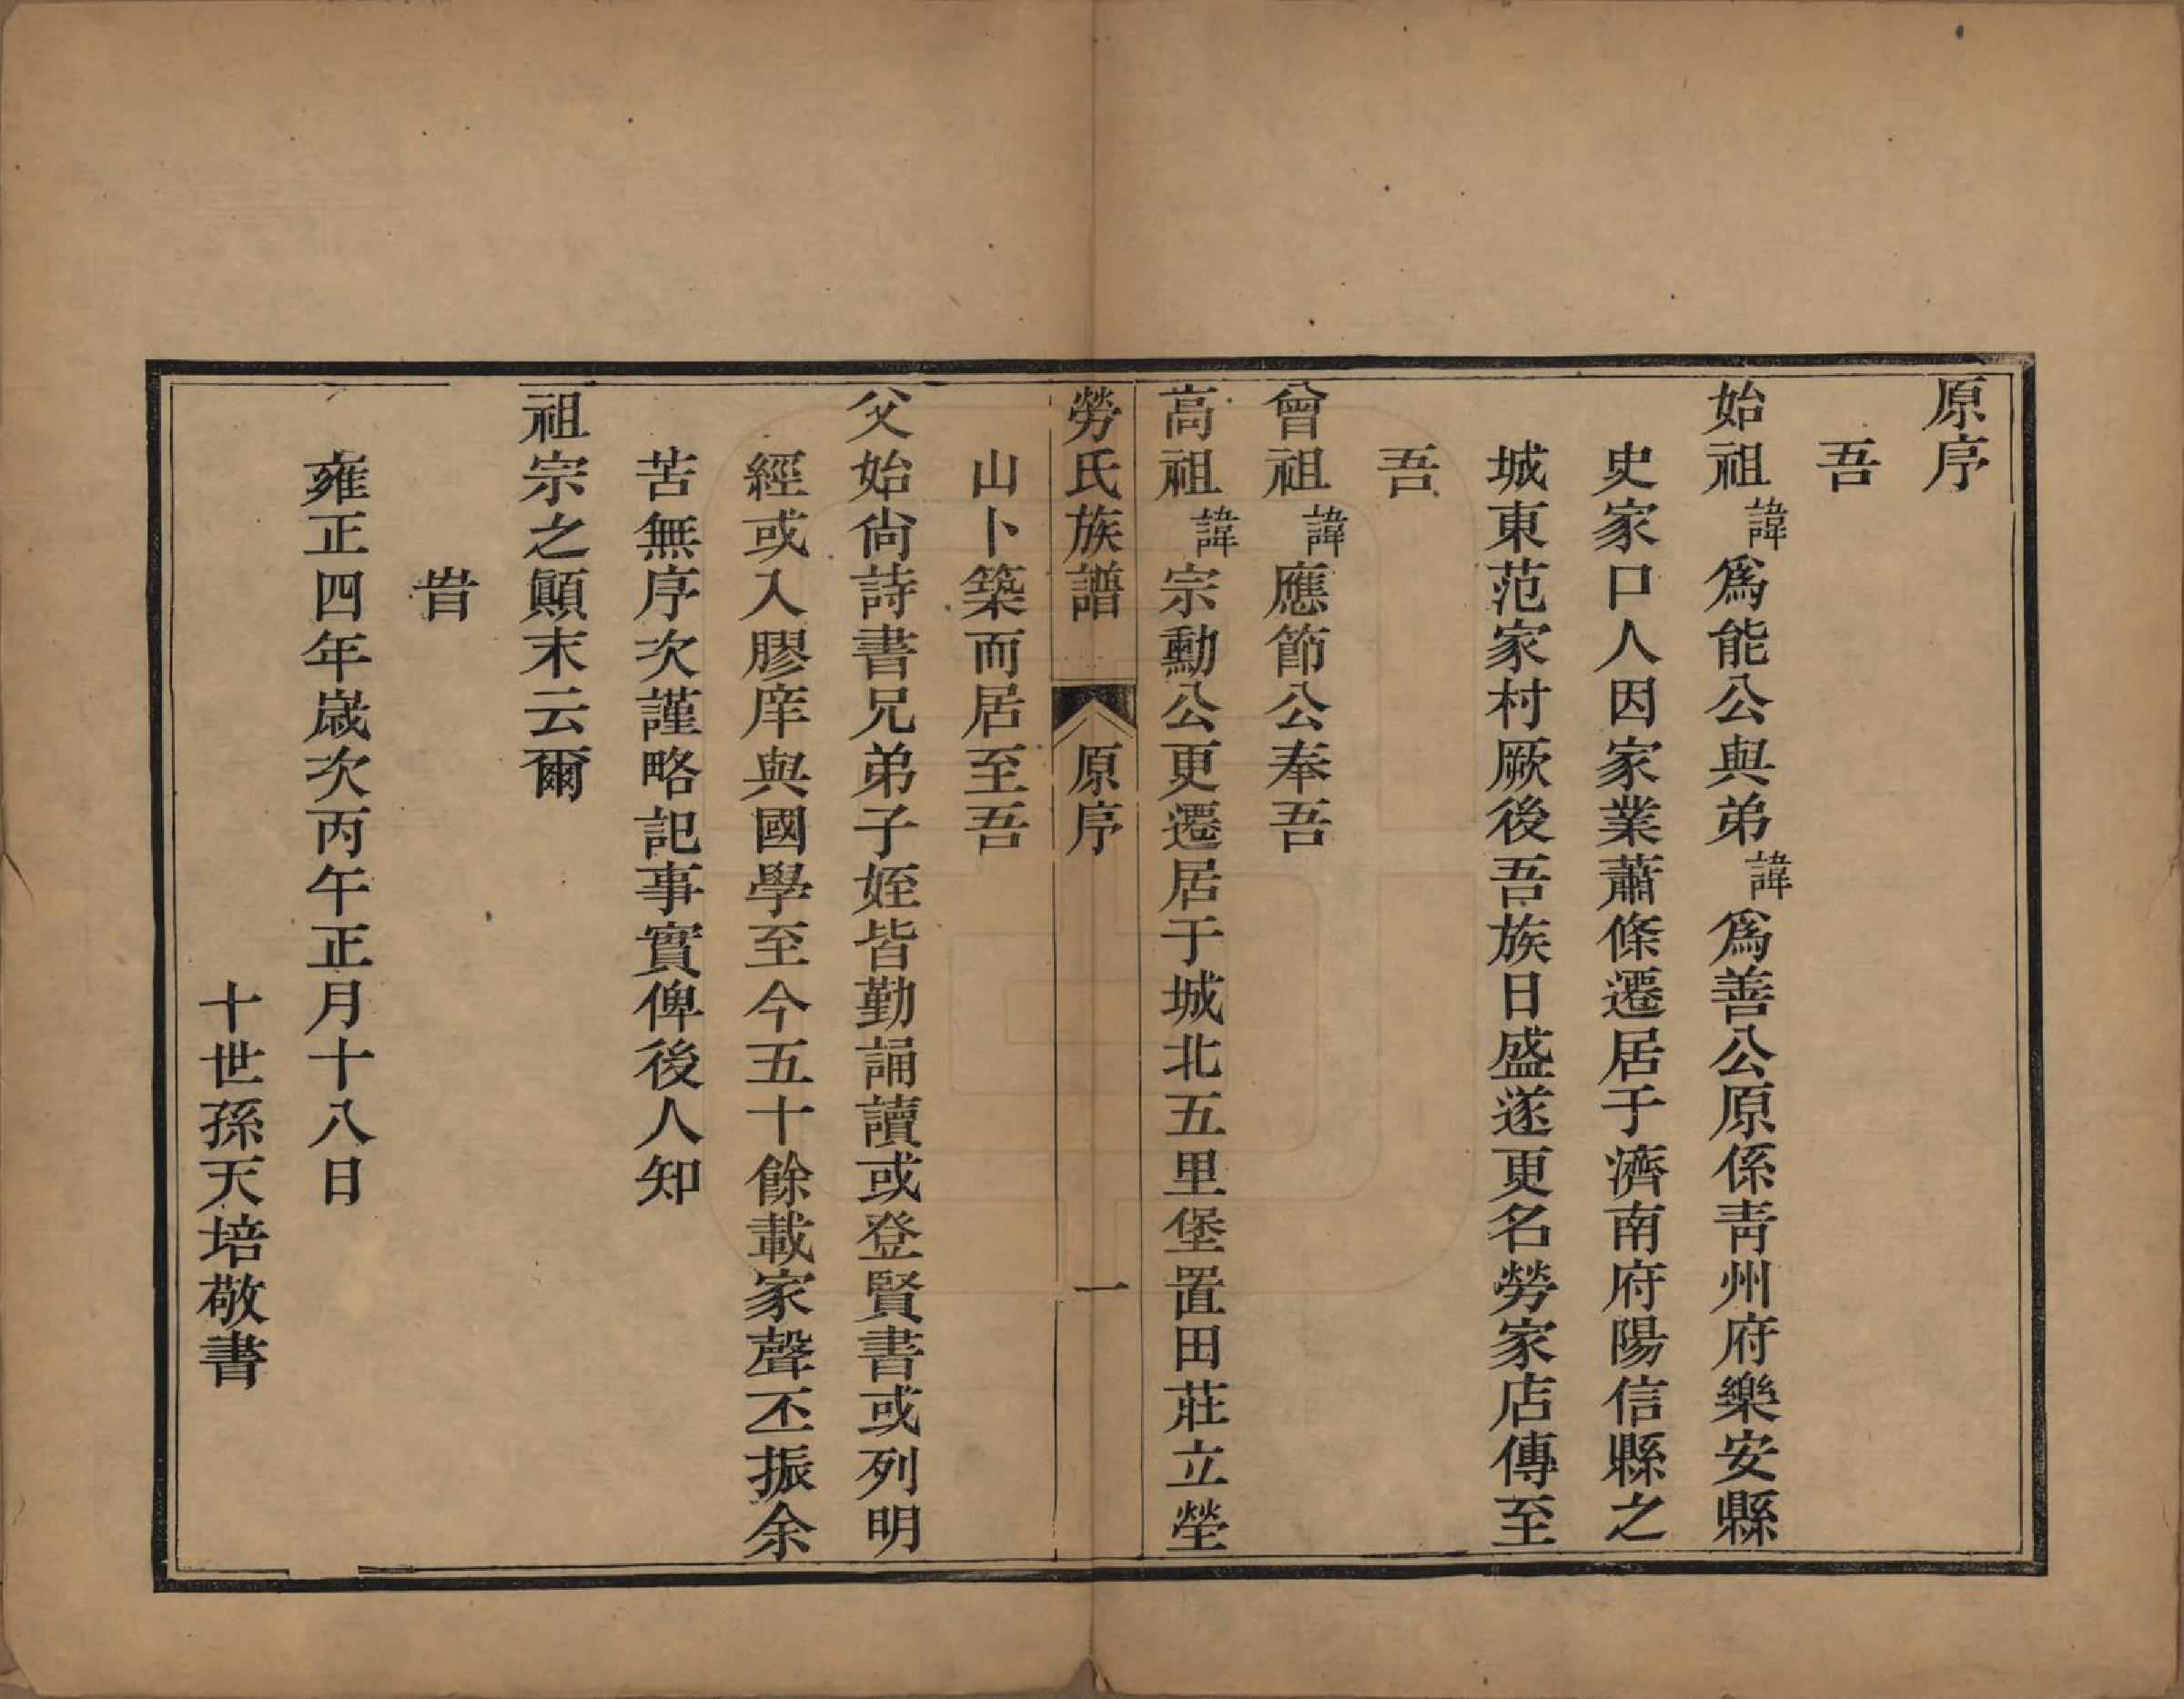 原序
吾
始祖諱爲能公與弟諱爲善公原係靑州府樂安縣
史家口人因家業蕭條遷居于濟南府陽信縣之
城東范家村厥後吾族日盛遂更名勞家店傳至
吾
曾祖諱應節公奉吾
高祖諱宗勳公更遷居于城北五里堡置田莊立塋
勞氏族譜 原序 一
山卜築而居至吾
父始尙詩書兄弟子姪皆勤誦讀或登賢書或列明
經或入膠庠與國學至今五十餘載家聲丕振余
苦無序次謹略記事實俾後人知
祖宗之顚末云爾
旹
雍正四年歲次丙午正月十八日
十世孫天培敬書